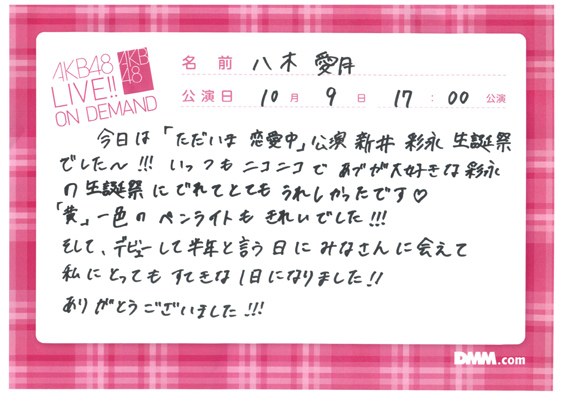 AKB48
LIVE!!
ON DEMAND
AKB
48
名前 八木 愛月
公演日 10月 9日 17:00 公演
今日は「ただいま 恋愛中」公演 新井 彩永 生誕祭
でした〜!!! いっつもニコニコで あづが大好きな彩永
の生誕祭にでれてとてもうれしかったです♡
「黄」一色の ペンライトも きれいでした!!!
そして、デビューして半年と言う日にみなさんに会えて
私にとっても すてきな1日になりました!!
ありがとうございました!!!
DMM.com